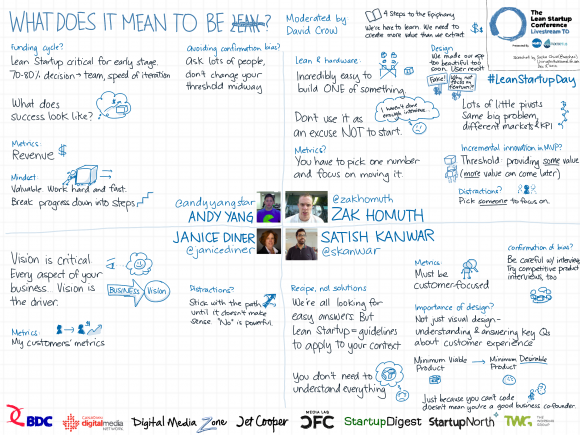 WHAT DOES IT MEAN TO BE LEAN?
Moderated by
David Crow
4 Steps to the Epiphany
We're here to learn. We need to
create more value than we extract
The
Lean Startup
Conference
Livestream TO
Presented by
#LeanStartupDay
Funding cycle?
Lean Startup critical for early stage.
70-80% decision → team, speed of iteration
What does
success look like?
Metrics:
Revenue $
Mindset
Valuable. Work hard and fast.
Break progress down into steps
Avoiding confirmation bias?
Ask lots of people,
don't change your
threshold midway
@andyyangstar
ANDY YANG
Lean & hardware:
Incredibly easy to
build ONE of something.
Don't use it as
an excuse NOT to start.
I haven't done
enough interviews
Metrics?
You have to pick one number
and focus on moving it.
Design
We made our app
too beautiful too
soon. User revolt
Fake!
Why not
focus on
features?
Lots of little pivots
Same big problem,
different markets & KPI
Incremental innovation in MVP?
Threshold: providing some value
(more value can come later)
Distractions?
Pick someone to focus on.
@zakhomuth
ZAK HOMUTH
JANICE DINER
@janicediner
SATISH KANWAR
@skanwar
Vision is critical
Every aspect of your
business. Vision is
the driver.
BUSINESS
Vision
Metrics:
My customers' metrics
Distractions?
Stick with the path
until it doesn't make
sense "No" is powerful.
Recipe, not solutions
We're all looking for
easy answers. But
Lean Startup = guidelines
to apply to your context
You don't need to
understand everything
Metrics:
Must be
customer-focused
confirmation of bias?
Be careful w/ interviewing
Try competitive product
interviews, too
Importance of design?
Not just visual design -
understanding & answering key Qs
about customer experience
Minimum Viable
Product
→ Minimum Desirable
Product
Just because you can't code
doesn't mean you're a good business co-founder.
BDC
CANADIAN
digitalmedia
NETWORK
Digital Media Zone
Jet Cooper
MEDIA LAB
CFC
StartupDigest
StartupNorth
TWG
THE WORKING GROUP